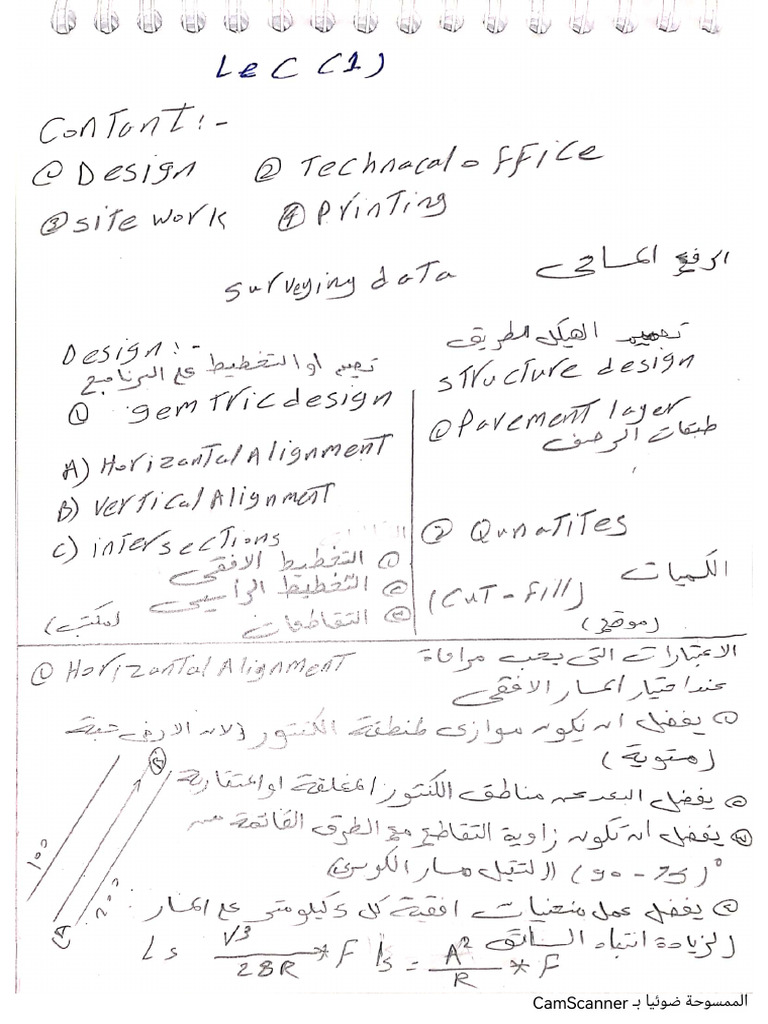 Lec (1)
Contant :-
① Design ② Technacal office
③ site work ④ Printing
surveying data الرفع المساحى
Design :-
تصميم او التخطيط على البرنامج
① gemtricdesign
A) Horizantal Alignment
B) vertical Alignment
C) intersections
① التخطيط الافقى
② التخطيط الراسى
③ التقاطعات
(مكتب)
تصميم الهيكل الطريق
structure design
① Pavement layer
طبقات الرصف
② Qunatites
الكميات
(cut - fill)
(موقع)
① Horizantal Alignment
الاعتبارات التى يجب مراعاة
عند اختيار المسار الافقى
① يفضل ان يكون موازى لمنطقة الكنتور لان الارض شبة
(مستوية)
② يفضل البعد عن مناطق الكنتور المغلقة او المتقاربة
③ يفضل ان تكون زاوية التقاطع مع الطرق القائمة من
(90 - 75)° لتقبل مسار الكوبرى
④ يفضل عمل منحنيات افقية كل 5 كيلومتر على المسار
لزيادة انتباه السائق
Ls V³/28R * F ls = A²/R * F
B
100
200
A
الممسوحة ضوئيا بـ CamScanner